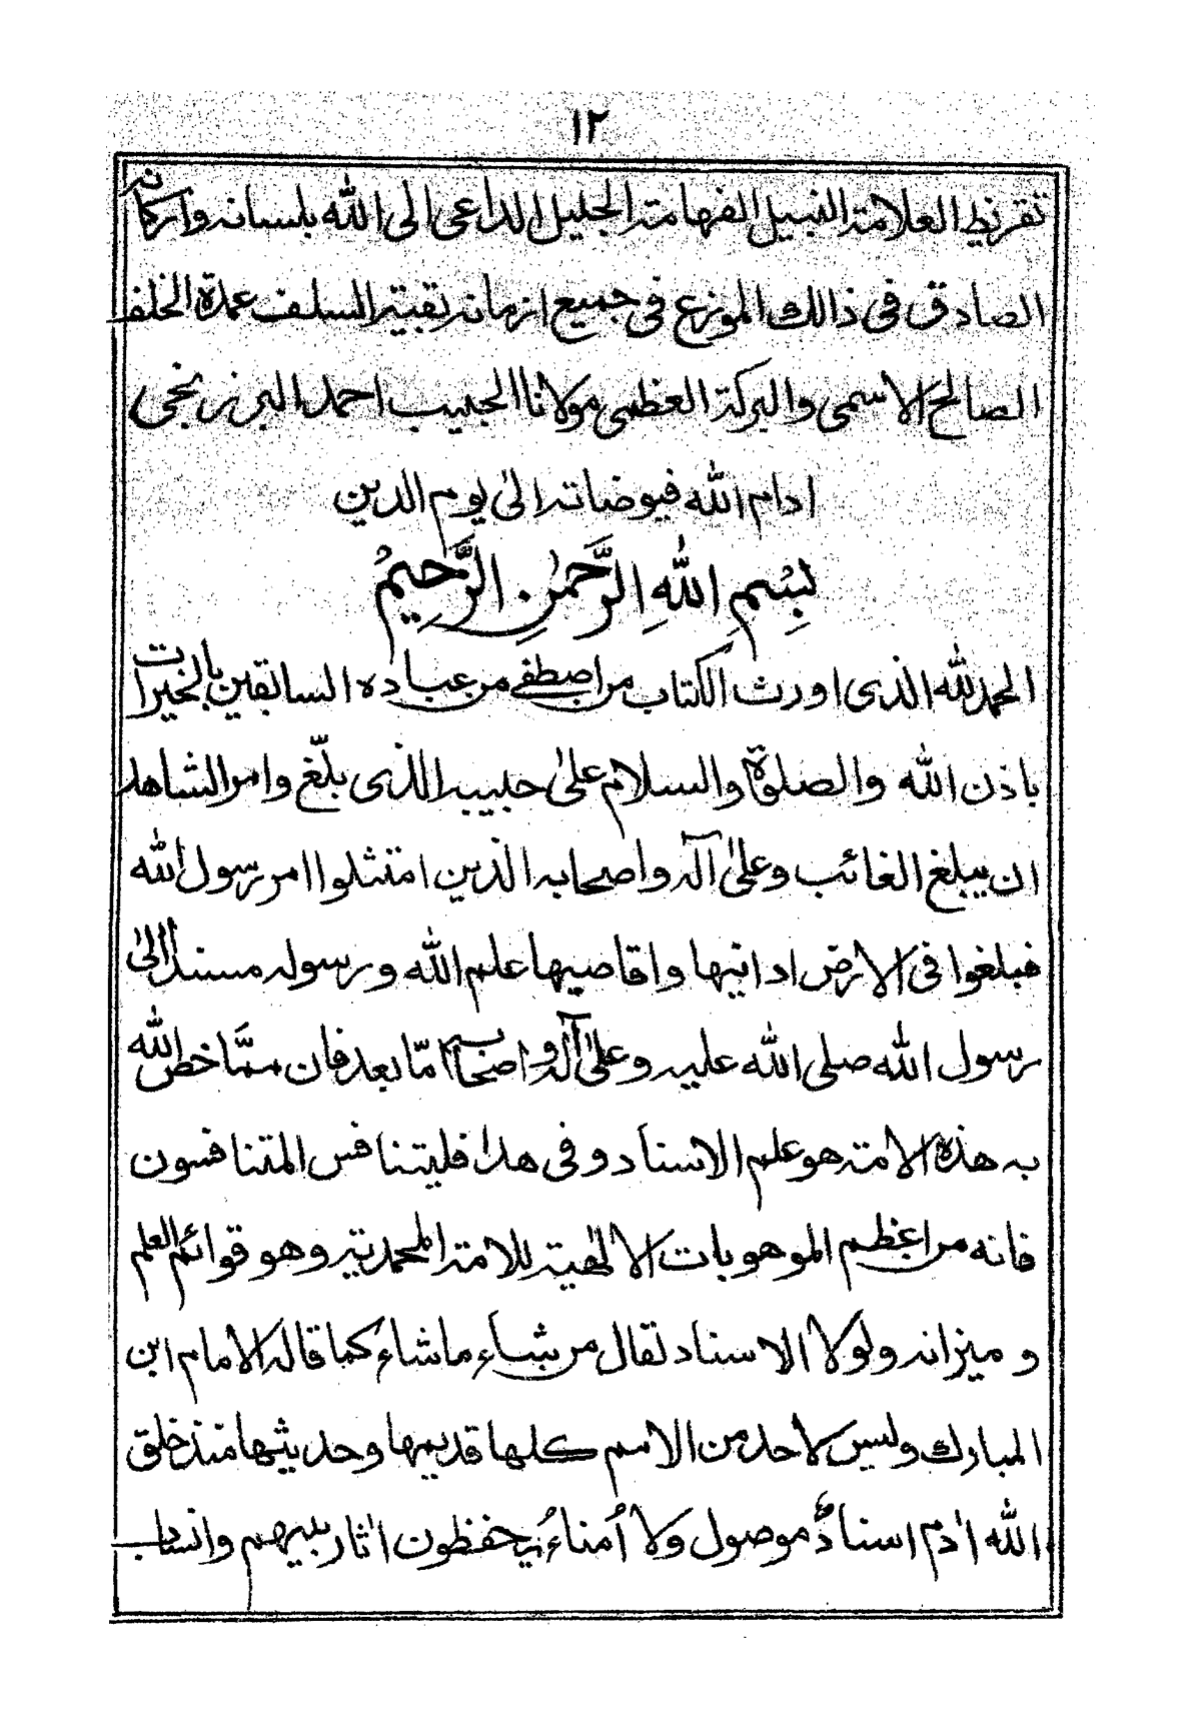 ١٢
تقريظ العلامة النبيل الفهامة الجليل الداعى الى الله بلسانه واركانه
الصادق فى ذالك الموزع فى جميع ازمانه بقية السلف عمدة الخلف
الصالح الاسمى والبركة العظمى مولانا الحبيب احمد البرزنجى
ادام الله فيوضاته الى يوم الدين
بِسْمِ اللهِ الرَّحْمٰنِ الرَّحِيمْ
الحمد لله الذى اورث الكتاب من اصطفے من عباده السابقين بالخيرات
باذن الله والصلوة والسلام على حبيبه الذى بلّغ وامر الشاهد
ان يبلغ الغائب وعلى آله واصحابه الذين امتثلوا امر رسول الله
فبلغوا فى الارض ادانيها واقاصيها علم الله ورسوله مسندا الى
رسول الله صلى الله عليه وعلى آله واصحابه امّا بعد فان ممّا خص الله
به هذه الامة هو علم الاسناد وفى هذا فليتنافس المتنافسون
فانه من اعظم الموهوبات الالٰهية للامة المحمدية وهو قوائم العلم
و ميزانه ولولا الاسناد لقال من شاء ماشاء كما قاله الامام ابن
المبارك وليس لاحد من الامم كلها قديمها وحديثها منذ خلق
الله اٰدم اسنادٌ موصول ولا اُمناءُ يحفظون اٰثار نبيهم وانساب